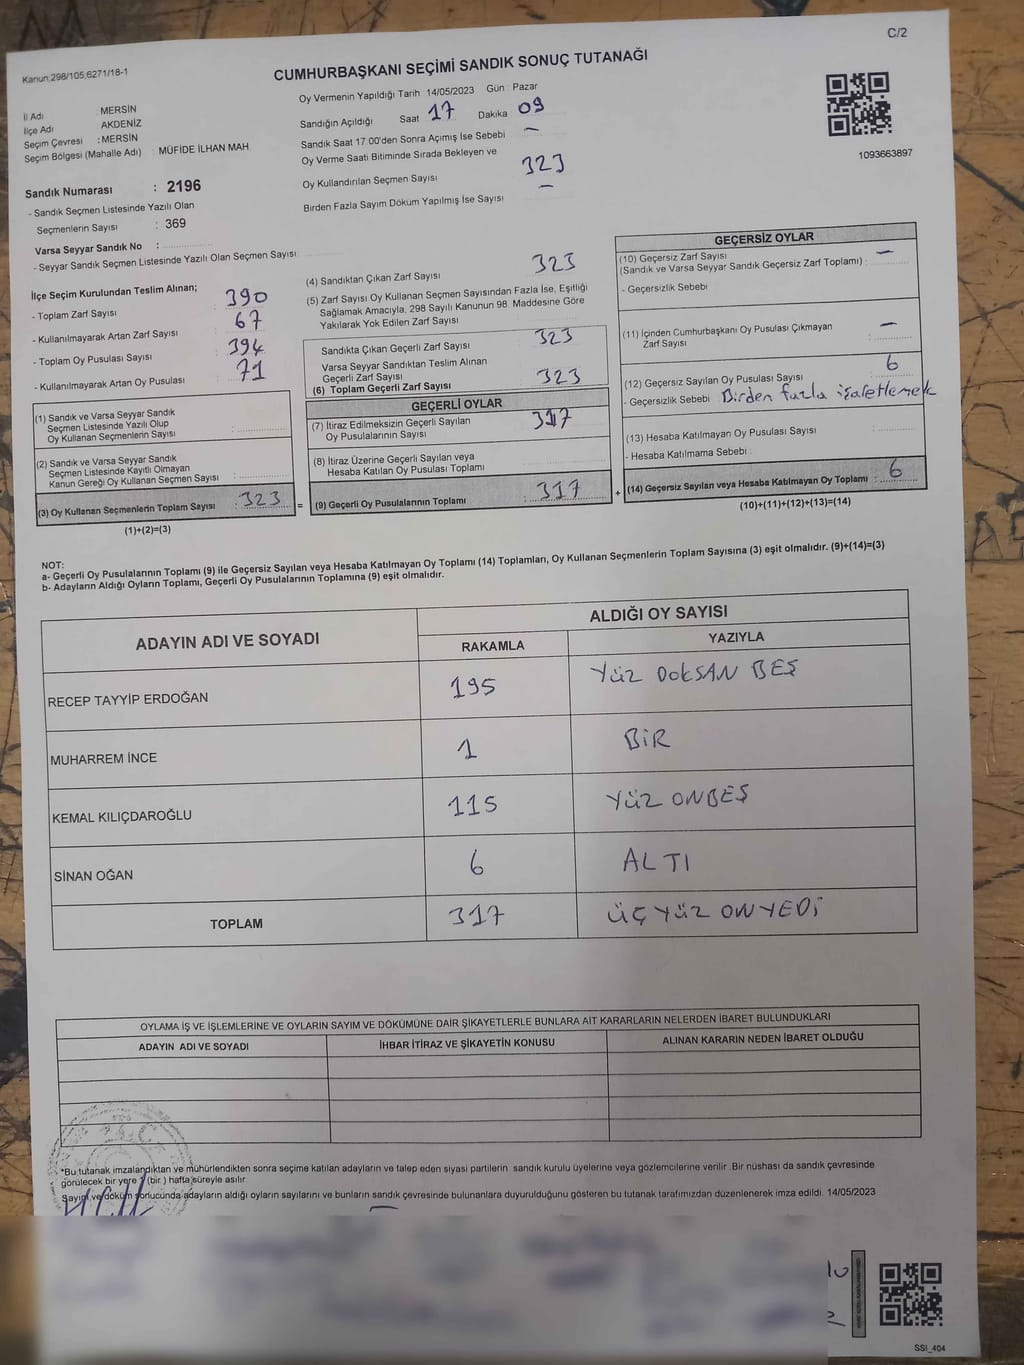 C/2
Kanun:298/105,6271/18-1
CUMHURBAŞKANI SEÇİMİ SANDIK SONUÇ TUTANAĞI
İl Adı MERSİN
İlçe Adı AKDENİZ
Seçim Çevresi : MERSİN
Seçim Bölgesi (Mahalle Adı) MÜFİDE İLHAN MAH
Sandık Numarası : 2196
- Sandık Seçmen Listesinde Yazılı Olan
Seçmenlerin Sayısı : 369
Varsa Seyyar Sandık No :
- Seyyar Sandık Seçmen Listesinde Yazılı Olan Seçmen Sayısı:
Oy Vermenin Yapıldığı Tarih 14/05/2023 Gün Pazar
Sandığın Açıldığı Saat 17 Dakika 09
Sandık Saat 17.00'den Sonra Açımış İse Sebebi –
Oy Verme Saati Bitiminde Sırada Bekleyen ve
Oy Kullandırılan Seçmen Sayısı 323
Birden Fazla Sayım Döküm Yapılmış İse Sayısı –
1093663897
İlçe Seçim Kurulundan Teslim Alınan;
- Toplam Zarf Sayısı : 390
- Kullanılmayarak Artan Zarf Sayısı : 67
- Toplam Oy Pusulası Sayısı : 394
- Kullanılmayarak Artan Oy Pusulası : 71
(1) Sandık ve Varsa Seyyar Sandık
Seçmen Listesinde Yazılı Olup
Oy Kullanan Seçmenlerin Sayısı :
(2) Sandık ve Varsa Seyyar Sandık
Seçmen Listesinde Kayıtlı Olmayan
Kanun Gereği Oy Kullanan Seçmen Sayısı :
(3) Oy Kullanan Seçmenlerin Toplam Sayısı : 323
(1)+(2)=(3)
=
(4) Sandıktan Çıkan Zarf Sayısı 323
(5) Zarf Sayısı Oy Kullanan Seçmen Sayısından Fazla İse, Eşitliği
Sağlamak Amacıyla, 298 Sayılı Kanunun 98. Maddesine Göre
Yakılarak Yok Edilen Zarf Sayısı
Sandıkta Çıkan Geçerli Zarf Sayısı 323
Varsa Seyyar Sandıktan Teslim Alınan
Geçerli Zarf Sayısı
(6) Toplam Geçerli Zarf Sayısı 323
GEÇERLİ OYLAR
(7) İtiraz Edilmeksizin Geçerli Sayılan
Oy Pusulalarının Sayısı 317
(8) İtiraz Üzerine Geçerli Sayılan veya
Hesaba Katılan Oy Pusulası Toplamı
(9) Geçerli Oy Pusulalarının Toplamı : 317
+
GEÇERSİZ OYLAR
(10) Geçersiz Zarf Sayısı
(Sandık ve Varsa Seyyar Sandık Geçersiz Zarf Toplamı) : –
- Geçersizlik Sebebi
(11) İçinden Cumhurbaşkanı Oy Pusulası Çıkmayan
Zarf Sayısı : –
(12) Geçersiz Sayılan Oy Pusulası Sayısı : 6
- Geçersizlik Sebebi Birden fazla işaretlemek
(13) Hesaba Katılmayan Oy Pusulası Sayısı :
- Hesaba Katılmama Sebebi :
(14) Geçersiz Sayılan veya Hesaba Katılmayan Oy Toplamı : 6
(10)+(11)+(12)+(13)=(14)
NOT:
a- Geçerli Oy Pusulalarının Toplamı (9) ile Geçersiz Sayılan veya Hesaba Katılmayan Oy Toplamı (14) Toplamları, Oy Kullanan Seçmenlerin Toplam Sayısına (3) eşit olmalıdır. (9)+(14)=(3)
b- Adayların Aldığı Oyların Toplamı, Geçerli Oy Pusulalarının Toplamına (9) eşit olmalıdır.
ADAYIN ADI VE SOYADI
ALDIĞI OY SAYISI
RAKAMLA YAZIYLA
RECEP TAYYİP ERDOĞAN 195 YÜZ DOKSAN BEŞ
MUHARREM İNCE 1 BİR
KEMAL KILIÇDAROĞLU 115 YÜZ ONBEŞ
SİNAN OĞAN 6 ALTI
TOPLAM 317 ÜÇ YÜZ ONYEDİ
OYLAMA İŞ VE İŞLEMLERİNE VE OYLARIN SAYIM VE DÖKÜMÜNE DAİR ŞİKAYETLERLE BUNLARA AİT KARARLARIN NELERDEN İBARET BULUNDUKLARI
ADAYIN ADI VE SOYADI İHBAR İTİRAZ VE ŞİKAYETİN KONUSU ALINAN KARARIN NEDEN İBARET OLDUĞU
*Bu tutanak imzalandıktan ve mühürlendikten sonra seçime katılan adayların ve talep eden siyasi partilerin sandık kurulu üyelerine veya gözlemcilerine verilir. Bir nüshası da sandık çevresinde
görülecek bir yere 1 (bir ) hafta süreyle asılır.
Sayım ve döküm sonucunda adayların aldığı oyların sayılarını ve bunların sandık çevresinde bulunanlara duyurulduğunu gösteren bu tutanak tarafımızdan düzenlenerek imza edildi. 14/05/2023
SSI_404